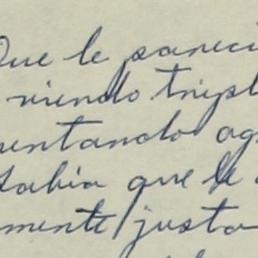 Que le pareci
viendo tripl
sentando ag
Sabia que le
mente/justa